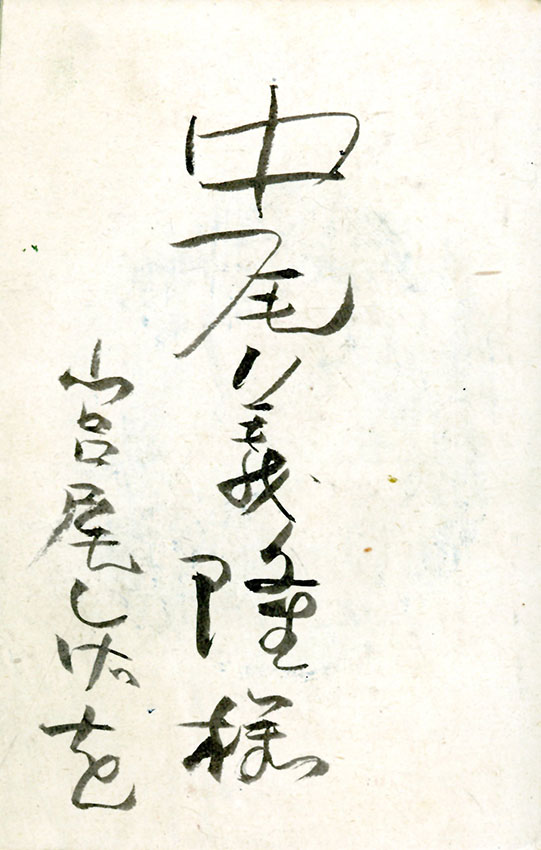 中尾義隆様
宮尾しげを